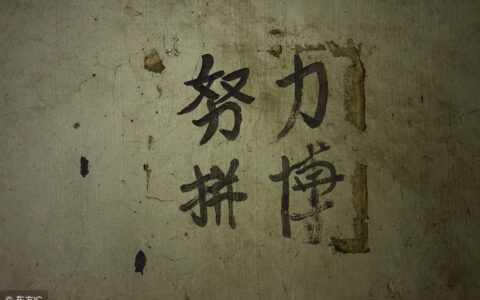 努力
拼搏
© 东方IC